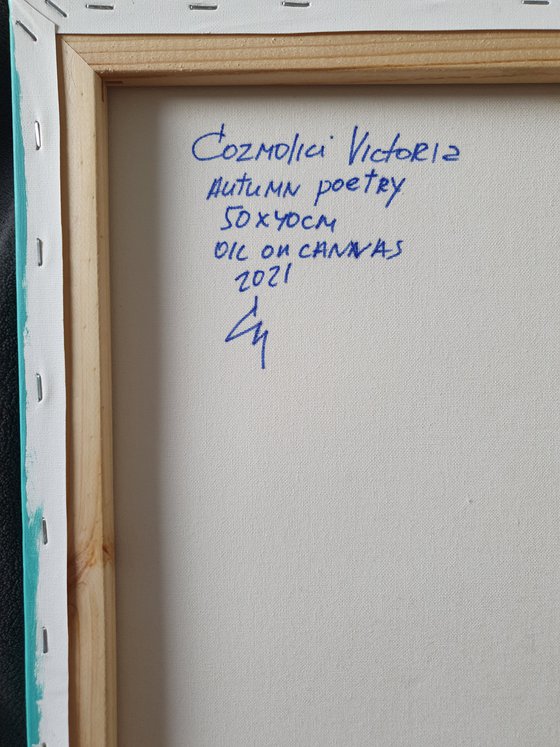 Cozmolici Victoria
Autumn poetry
50x40cm
oil on cannvas
2021